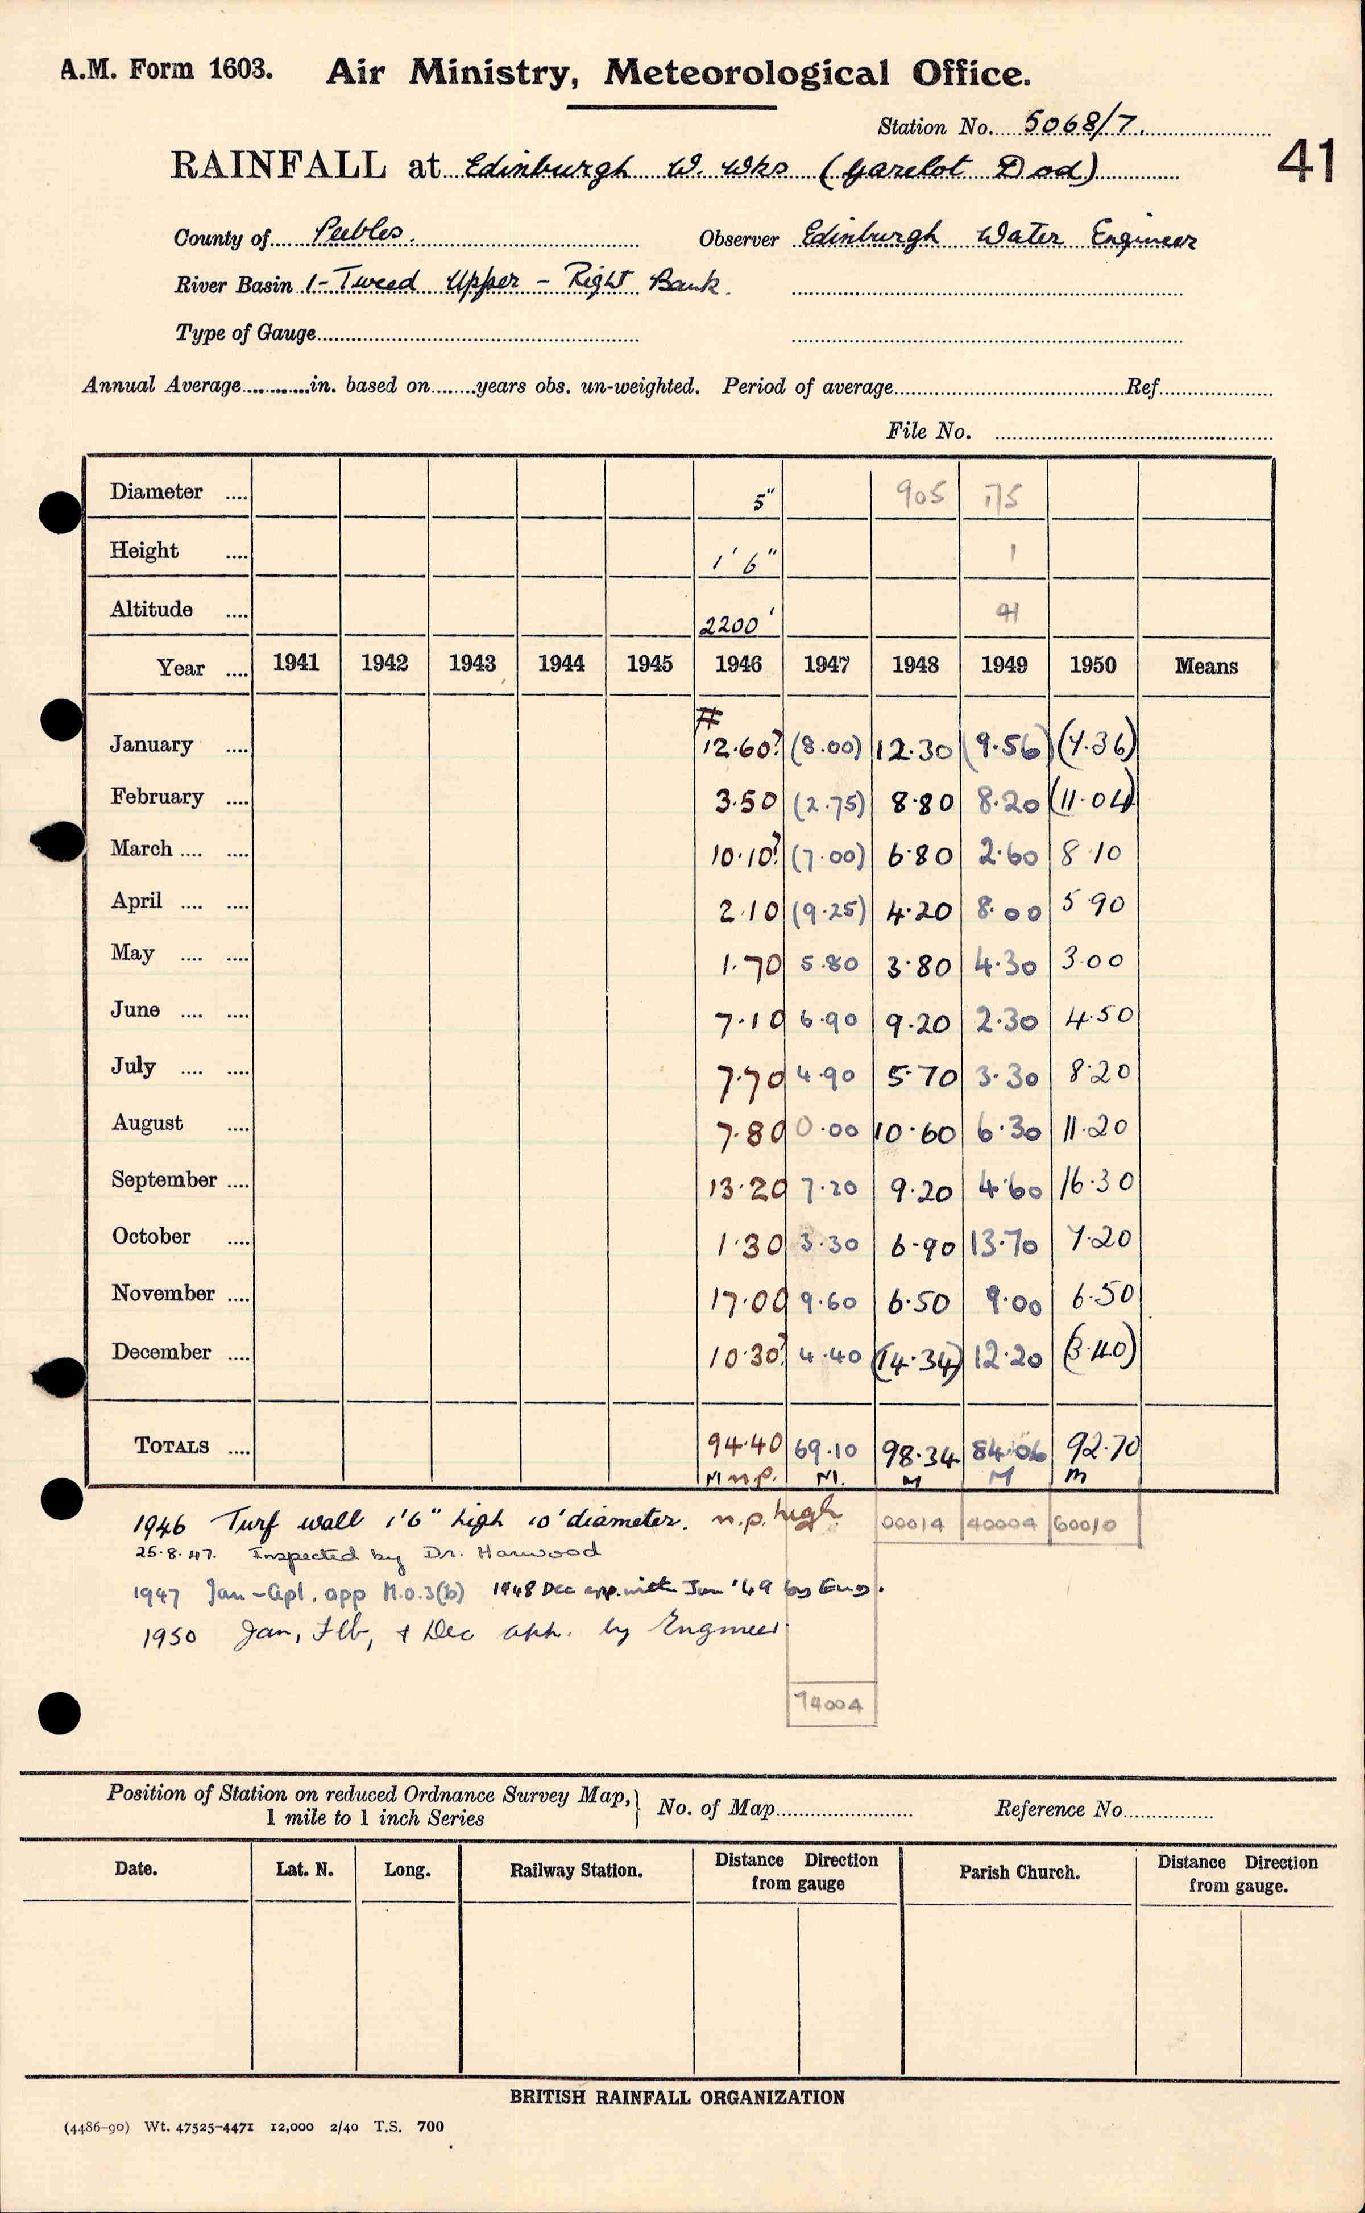 A.M. Form 1603. Air Ministry, Meteorological Office.
Station No. 5068/7.
41
RAINFALL at Edinburgh W. Wks (Garelot Dod)
County of Peebles. Observer Edinburgh Water Engineer
River Basin 1 - Tweed Upper - Right Bank.
Type of Gauge
Annual Average in. based on years obs. un-weighted. Period of average Ref.
File No.
Diameter 5" 905 175
Height 1' 6" 1
Altitude 2200' 41
Year 1941 1942 1943 1944 1945 1946 1947 1948 1949 1950 Means
#
January 12.60? (8.00) 12.30 (9.56) (7.36)
February 3.50 (2.75) 8.80 8.20 (11.04)
March 10.10? (7.00) 6.80 2.60 8.10
April 2.10 (9.25) 4.20 8.00 5.90
May 1.70 5.80 3.80 4.30 3.00
June 7.10 6.90 9.20 2.30 4.50
July 7.70 4.90 5.70 3.30 8.20
August 7.80 0.00 10.60 6.30 11.20
September 13.20 7.20 9.20 4.60 16.30
October 1.30 3.30 6.90 13.70 7.20
November 17.00 9.60 6.50 9.00 6.50
December 10.30? 4.40 (14.34) 12.20 (3.40)
TOTALS 94.40 69.10 98.34 84.06 92.70
M n.p. M. M M M
1946 Turf wall 1'6" high 10' diameter. n.p. high
00014 40004 60010
25.8.47. Inspected by Dr. Harwood
1947 Jan - Apl. app M.O.3(b) 1948 Dec app. with Jan '49 by Eng.
1950 Jan, Feb, & Dec app. by Engineer
94004
Position of Station on reduced Ordnance Survey Map, 1 mile to 1 inch Series } No. of Map Reference No.
Date. Lat. N. Long. Railway Station. Distance Direction from gauge Parish Church. Distance Direction from gauge.
BRITISH RAINFALL ORGANIZATION
(4486-90) Wt. 47525-4471 12,000 2/40 T.S. 700